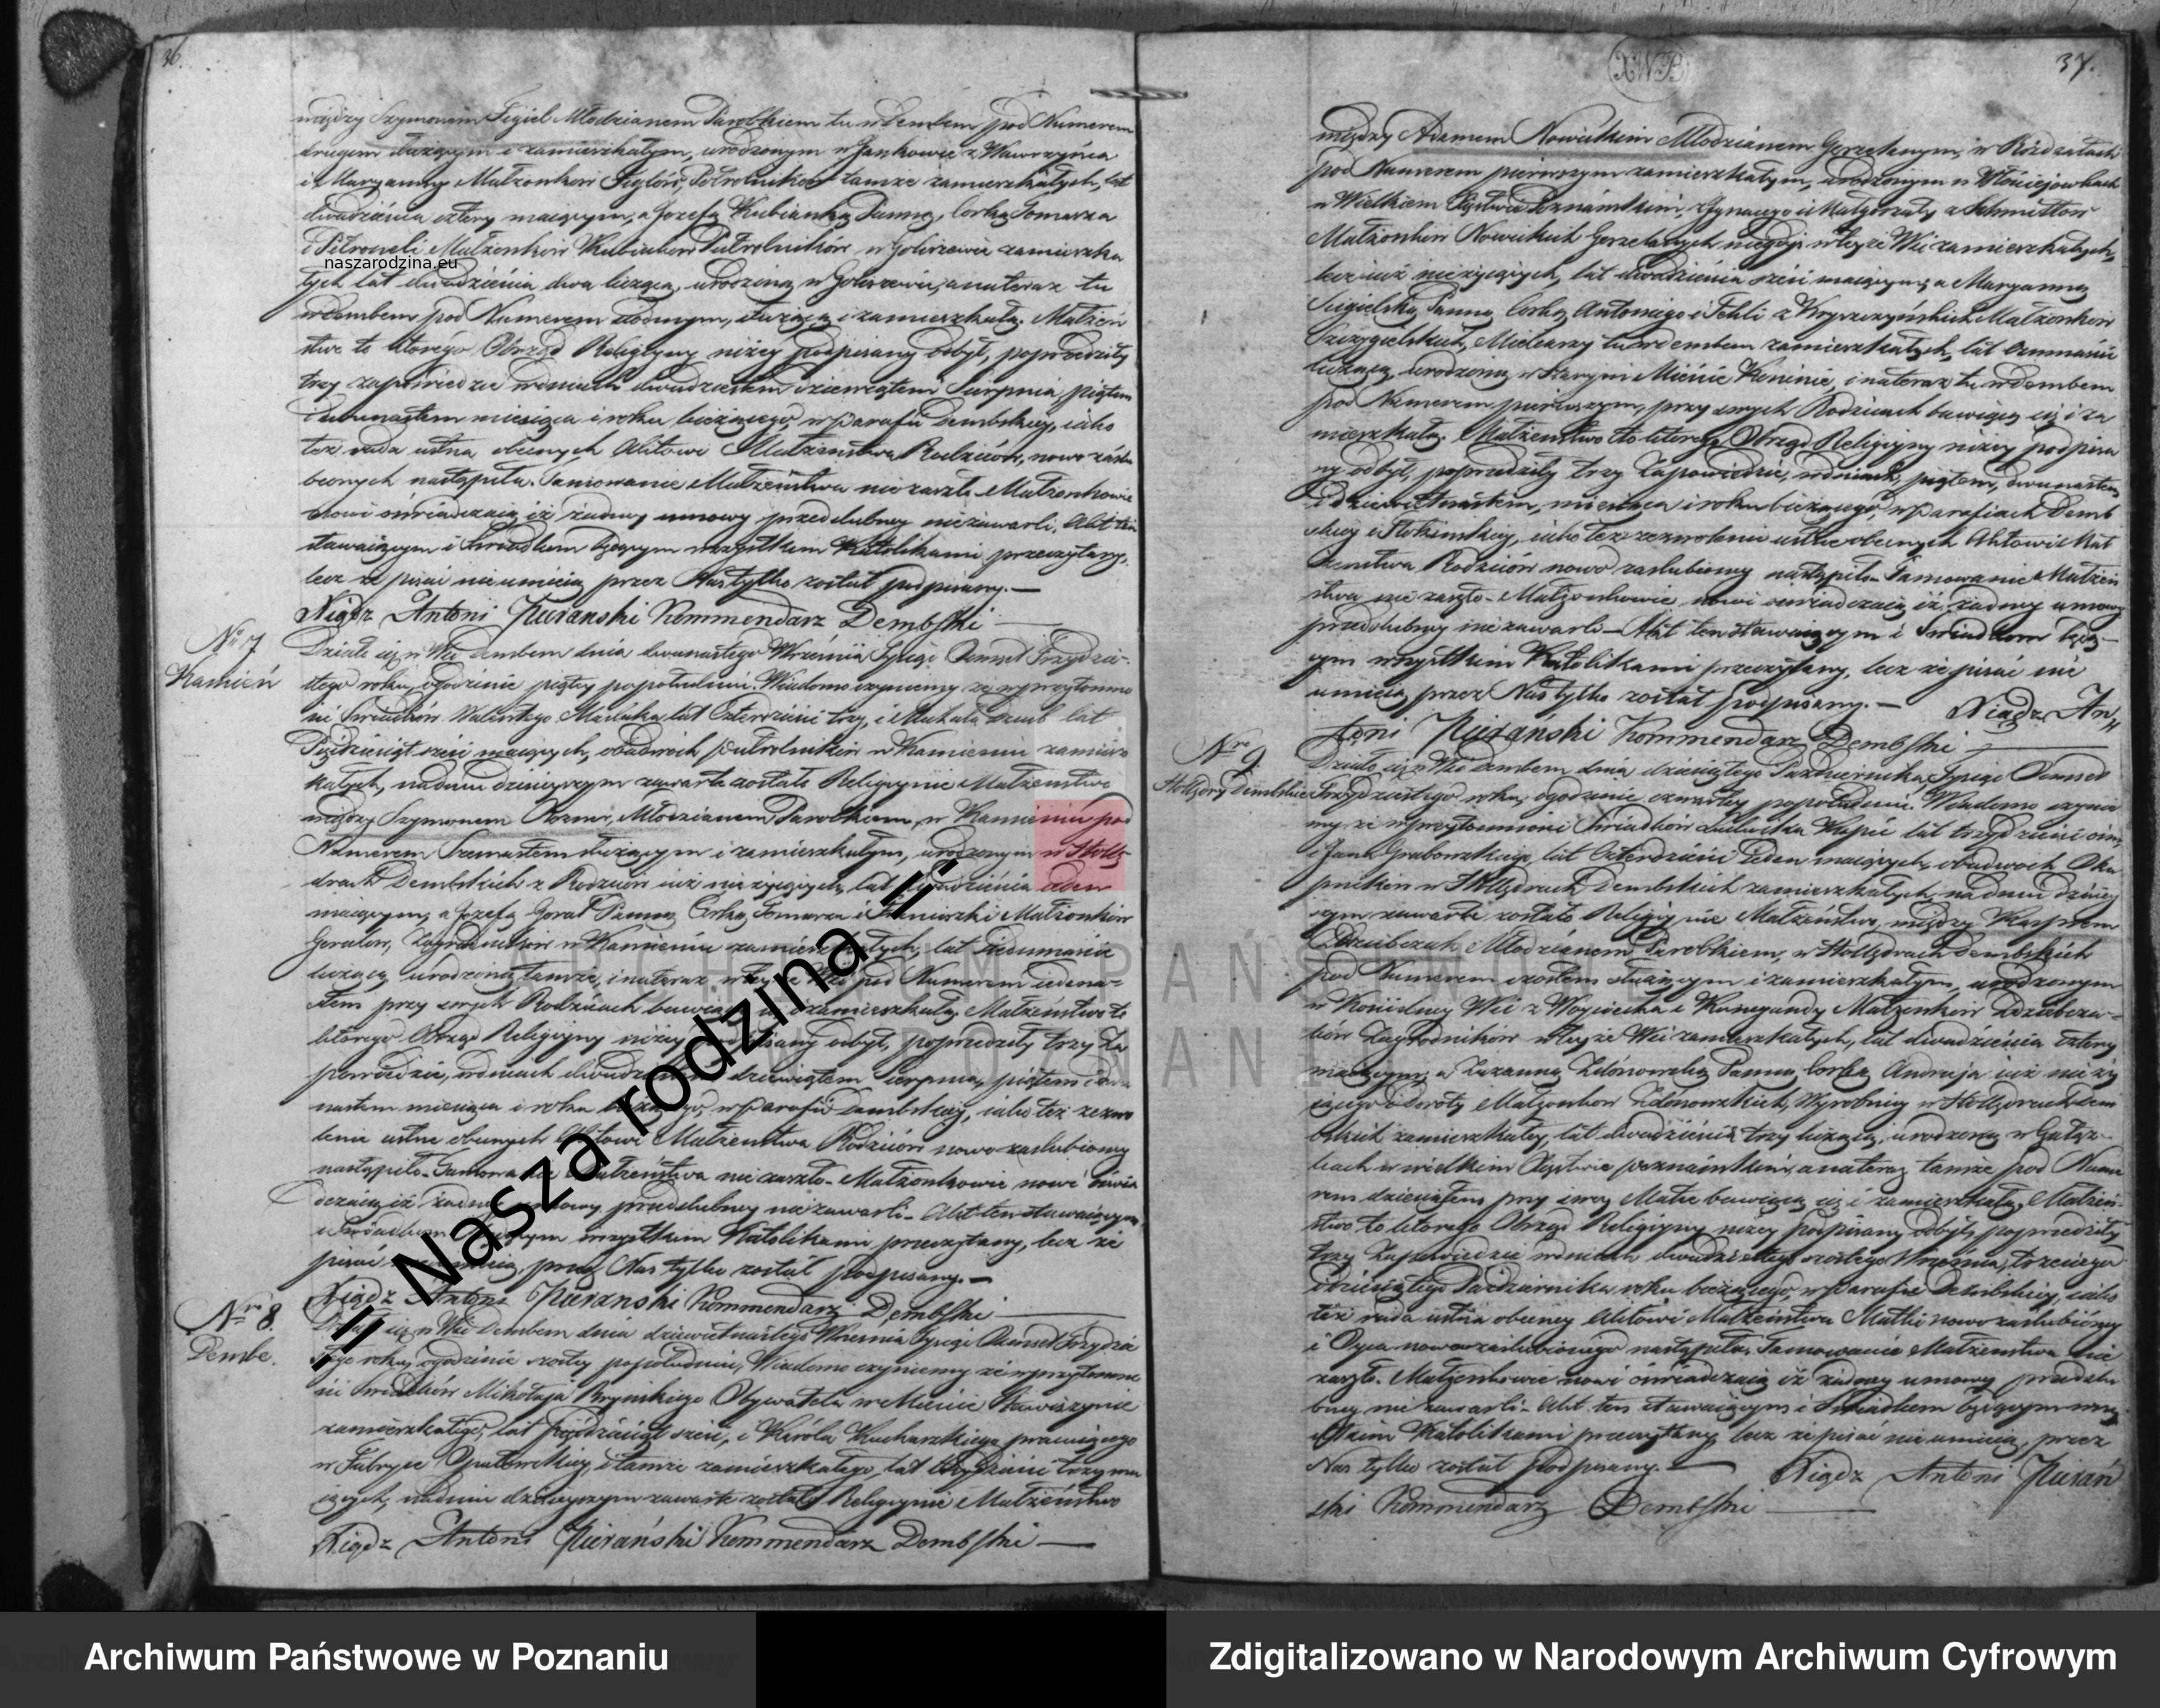 36.
między Szymonem Figiel Młodzianem Parobkiem tu w Dembem pod Numerem
drugim służącym i zamieszkałym, urodzonym w Jankowie z Wawrzyńca
i Maryanny Małżonków Figlów, Półrolników tamże zamieszkałych, lat
dwadzieścia cztery maiącym, a Jozefą Kubianką Panną, Corką Tomasza
i Petroneli Małżonków Kubiaków Półrolników w zamieszka
łych lat dwadzieścia dwa liczącą, urodzoną w a na teraz tu
w Dembem pod Numerem siodmym, służącą i zamieszkałą. Małżeń
stwo to którego Obrząd Religiyny niżey podpisany odbył, poprzedziły
trzy zapowiedzie w dniach dwudziestem dziewiątem Sierpnia, piątem
i dwunastem miesiąca i roku bieżącego, w Parafii Dembskiey, iako
też rada ustna obecnych Aktowi Małżeństwa Rodziców, nowo zaślu
bionych nastąpiła. Tamowanie Małżeństwa nie zaszło. Małżonkowie
nowi oświadczaią iż żadney umowy przedślubney nie zawarli. Akt ten
stawaiącym i Świadkom będącym wszystkim Katolikami przeczytany,
lecz że pisać nie umieią przez Nas tylko został podpisany.—
Xiądz Antoni Pierański Kommendarz Dembski
Nro 7
Kamień
Działo się w Wsi Dembem dnia dwunastego Września Tysiąc Osmset Trzydzie-
stego roku, o godzinie piątey popołudniu. Wiadomo czynimy że w przytomno
ści Świadków Walentego lat Czterdzieści trzy, i Michała lat
Pięćdziesiąt sześć maiących, obudwóch Półrolników w Kamieniu zamiesz
kałych, na dniu dzisieyszym zawarte zostało Religiynie Małżeństwo
między Szymonem Młodzianem Parobkiem, w Kamieniu pod
Numerem służącym i zamieszkałym, urodzonym w Hollę
drach Dembskich z Rodziców iuż nieżyiących, lat dwadzieścia ieden
maiącym, a Jozefą Goral Panną Corką Tomasza i Franciszki Małżonków
Goralów, Zagrodników w Kamieniu zamieszkałych, lat siedmnaście
liczącą urodzoną tamże, i na teraz w teyże Wsi pod Numerem iedena-
stem przy swych Rodzicach bawiącą się i zamieszkałą. Małżeństwo to
którego Obrząd Religiyny niżey podpisany odbył, poprzedziły trzy Za
powiedzie, w dniach dwudziestem dziewiątem Sierpnia, piątem i dwu
nastem miesiąca i roku bieżącego, w Parafii Dembskiey, iako też zezwo
lenie ustne obecnych Aktowi Małżeństwa Rodziców nowo zaślubioney
nastąpiło. Tamowanie Małżeństwa nie zaszło. Małżonkowie nowi oświa
dczaią iż żadney umowy przedślubney nie zawarli. Akt ten stawaiącym
i Świadkom będącym wszystkim Katolikami przeczytany, lecz że
pisać nie umieią, przez Nas tylko został podpisany.—
Xiądz Antoni Pierański Kommendarz Dembski
Nro 8.
Dembe.
Działo się w Wsi Dembem dnia dziewiętnastego Września Tysiąc Osmset Trzydzie
stego roku, o godzinie szostey popołudniu, Wiadomo czyniemy że w przytomno
ści Świadków Mikołaja Obywatela w Mieście Stawiszynie
zamieszkałego, lat pięćdziesiąt sześć, i Karóla Kucharskiego pracuiącego
w Fabryce Opatowskiey, i tamże zamieszkałego, lat trzydzieści trzy ma
iących, na dniu dzisieyszym zawarte zostało Religiynie Małżeństwo
Xiądz Antoni Pierański Kommendarz Dembski
37.
XWP
między Adamem Nowickim Młodzianem Gorzelanym, w Rózdzałach
pod Numerem pierwszym zamieszkałym, urodzonym w Włościejewkach
w Wielkiem Xięstwie Poznańskim, z Ignacego i Małgorzaty z Schmittow
Małżonków Nowickich Gorzelanych niegdyś w teyże Wsi zamieszkałych,
lecz iuż nieżyiących, lat dwadzieścia sześć maiącym, a Maryanną
Panną, Corką Antoniego i Tekli z Małżonków
Mielcarzy tu w Dembem zamieszkałych, lat Osmnaście
liczącą, urodzoną w Starym Mieście Koninie, i na teraz tu w Dembem
pod Numerem pierwszym, przy swych Rodzicach bawiącą się i za
mieszkałą. Małżeństwo to którego Obrząd Religiyny niżey podpisa
ny odbył, poprzedziły trzy Zapowiedzie, w dniach, piątem, dwunastem
i dziewiętnastem, miesiąca i roku bieżącego, w Parafiach Demb
skiey i iako też zezwolenie ustne obecnych Aktowi Mał
żeństwa Rodziców nowo zaślubioney nastąpiło. Tamowanie Małżeń
stwa nie zaszło. Małżonkowie nowi oświadczaią iż żadney umowy
przedślubney nie zawarli — Akt ten stawaiącym i Świadkom będą-
cym wszystkim Katolikami przeczytany, lecz że pisać nie
umieią przez Nas tylko został podpisany.— Xiądz An„
toni Pierański Kommendarz Dembski
Nro 9.
Hollędry Dembskie
Działo się w Wsi Dembem dnia dziesiątego Pazdziernika Tysiąc Osmset
Trzydziestego roku, o godzinie czwartey popołudniu. Wiadomo czynie
my że w przytomności Świadków Ludwika lat trzydzieści ośm,
i Jana Grabowskiego, lat Czterdzieści ieden maiących, obudwóch Oku
pników w Hollędrach Dembskich zamieszkałych, na dniu dzisiey
szym zawarte zostało Religiynie Małżeństwo, między Kasprem
Dziubczak Młodzianem Parobkiem, w Hollędrach Dembskich
pod Numerem szostem służącym i zamieszkałym, urodzonym
w Wsi z Woyciecha i Kunegundy Małżonków Dziubcza-
ków Zagrodników w teyże Wsi zamieszkałych, lat dwadzieścia cztery
maiącym, a Zuzanną Zdónowską Panną Corką Andrzeja iuż nieży
iącego i Doroty Małżonków Zdónowskich, Wyrobnicy w Hollędrach Dem
bskich zamieszkałey, lat dwadzieścia trzy liczącą, urodzoną w
w Wielkim Xięstwie poznańskim, a na teraz tamże pod Nume
rem dziewiątem przy swey Matce bawiącą się i zamieszkałą. Małżeń-
stwo to którego Obrząd Religiyny niżey podpisany odbył, poprzedziły
trzy Zapowiedzie w dniach dwudziestego szostego Września, trzeciego
i dziesiątego Pazdziernika roku bieżącego, w Parafii Dembskiey, iako
też rada ustna obecney Aktowi Małżeństwa Matki nowo zaślubioney
i Oyca nowo zaślubionego nastąpiła. Tamowanie Małżeństwa nie
zaszło. Małżonkowie nowi oświadczaią iż żadney umowy przedślu
bney nie zawarli. Akt ten stawaiącym i Świadkom będącym wszy
stkim Katolikami przeczytany, lecz że pisać nie umieią, przez
Nas tylko został podpisany.— Xiądz Antoni Pierań
ski Kommendarz Dembski
naszarodzina.eu
-= Nasza rodzina =-
ARCHIWUM PAŃSTWOWE
W POZNANIU
Archiwum Państwowe w Poznaniu
Zdigitalizowano w Narodowym Archiwum Cyfrowym